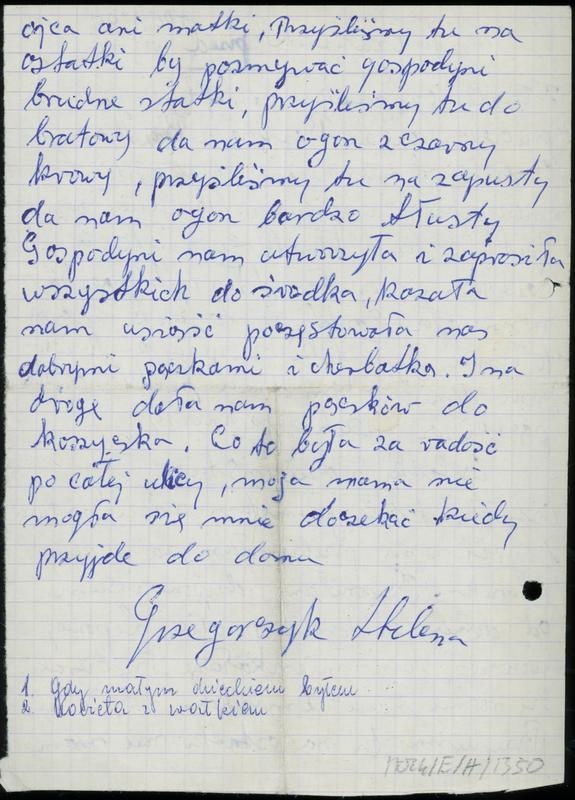 ojca ani matki, Przyśliśmy tu na
ostatki by pozmywać gospodyni
brudne statki, przyśliśmy tu do
bratowy da nam ogon z czarny
krowy, przyśliśmy tu na zapusty
da nam ogon bardzo tłusty
Gospodyni nam utworzyła i zaprosiła
wszystkich do środka, kazała
nam usiąść poczęstowała nas
dobrymi pączkami i cherbatką. I na
drogę dała nam pączków do
koszyczka. Co to była za radość
po całej ulicy, moja mama nie
mogła się mnie doczekać kiedy
przyjde do domu
Grzegorczyk Helena
1. Gdy małym dzieckiem byłem
2. Kobieta z wałkiem